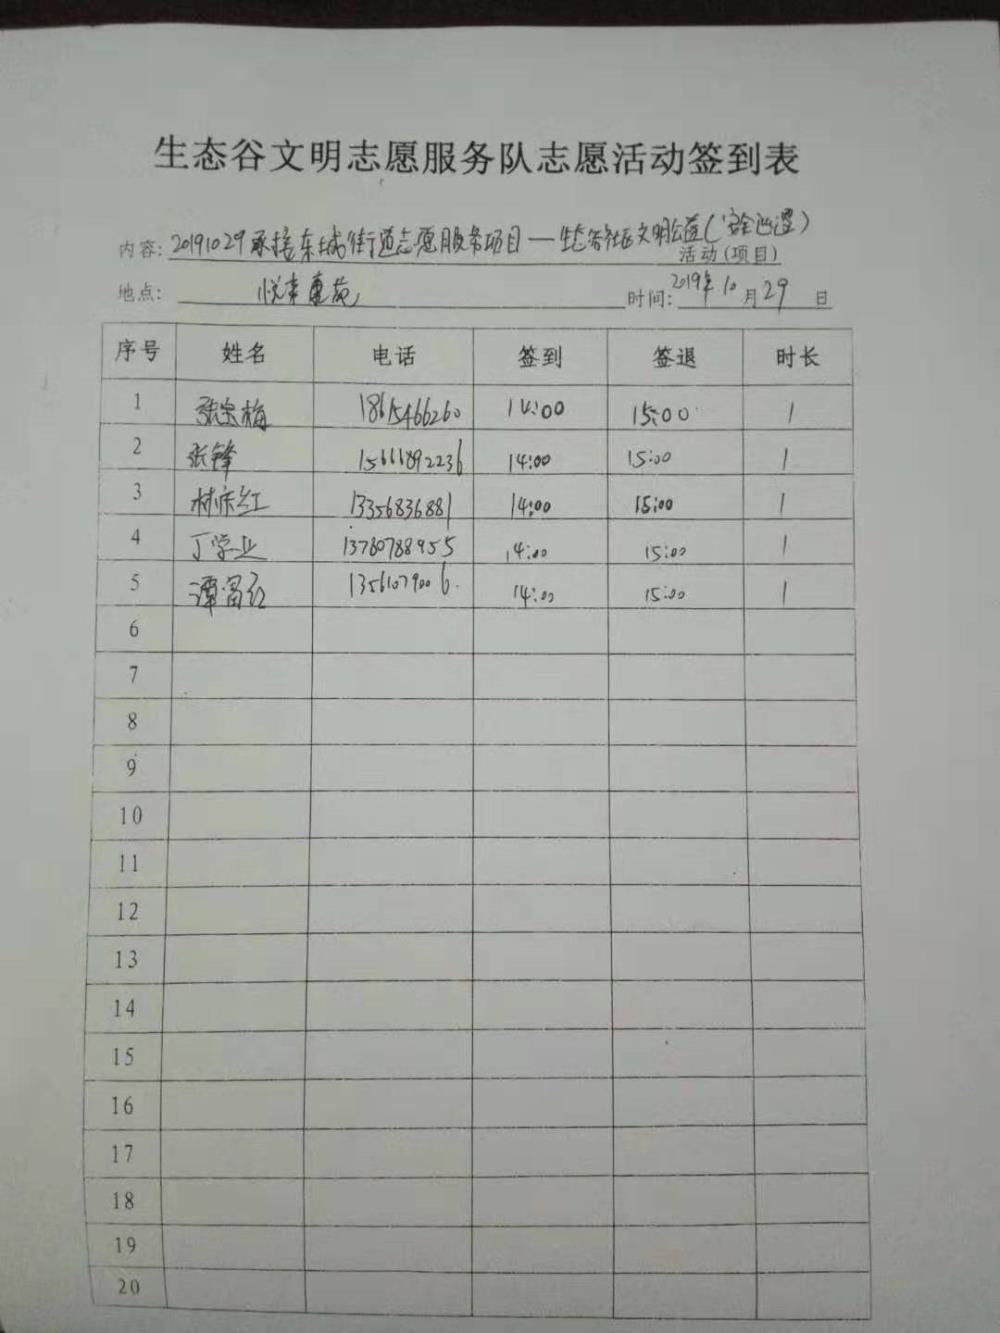 生态谷文明志愿服务队志愿活动签到表
内容: 20191029承接东城街道志愿服务项目—生态谷社区文明公益(安全巡逻)
活动(项目)
地点: 悦来惠苑 时间: 2019年10月29日
序号 姓名 电话 签到 签退 时长
1 张宝梅 1865466260 14:00 15:00 1
2 张锋 15666892236 14:00 15:00 1
3 林床红 13356836881 14:00 15:00 1
4 丁学业 13780788955 14:00 15:00 1
5 谭富红 13561079006. 14:00 15:00 1
6
7
8
9
10
11
12
13
14
15
16
17
18
19
20